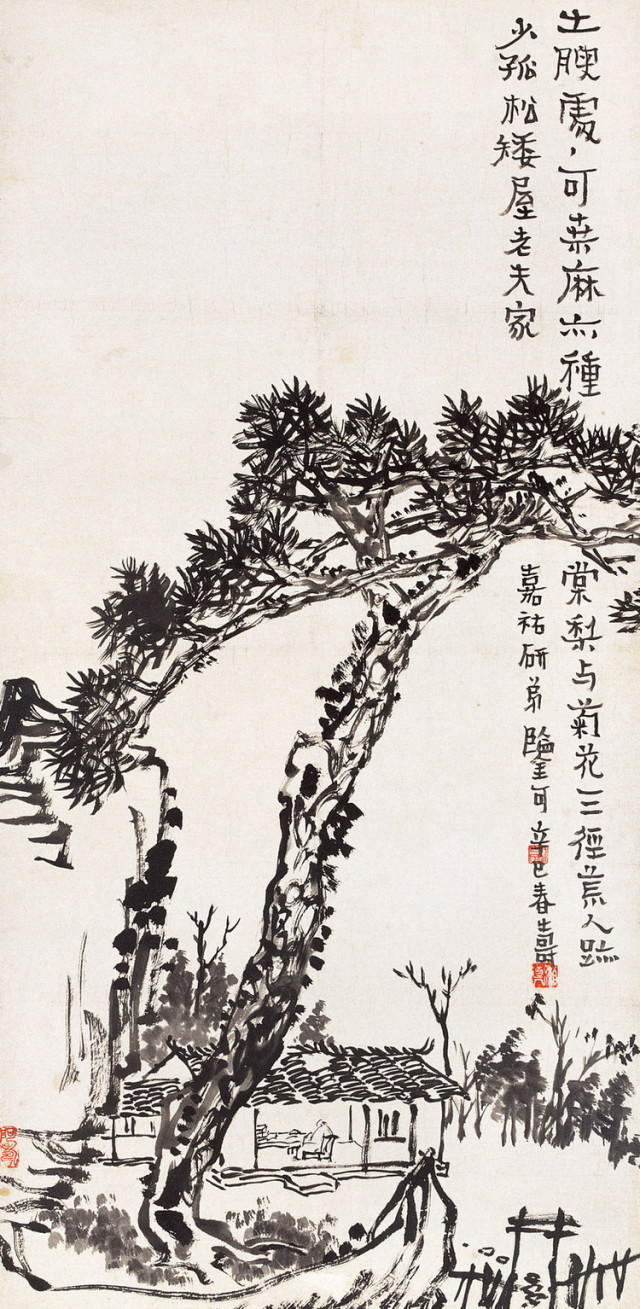 土腴處〻可桒麻亦種棠梨与菊花三徑荒人跡
少孤松矮屋老夫家
嘉祐研弟鑒可辛巳春壽